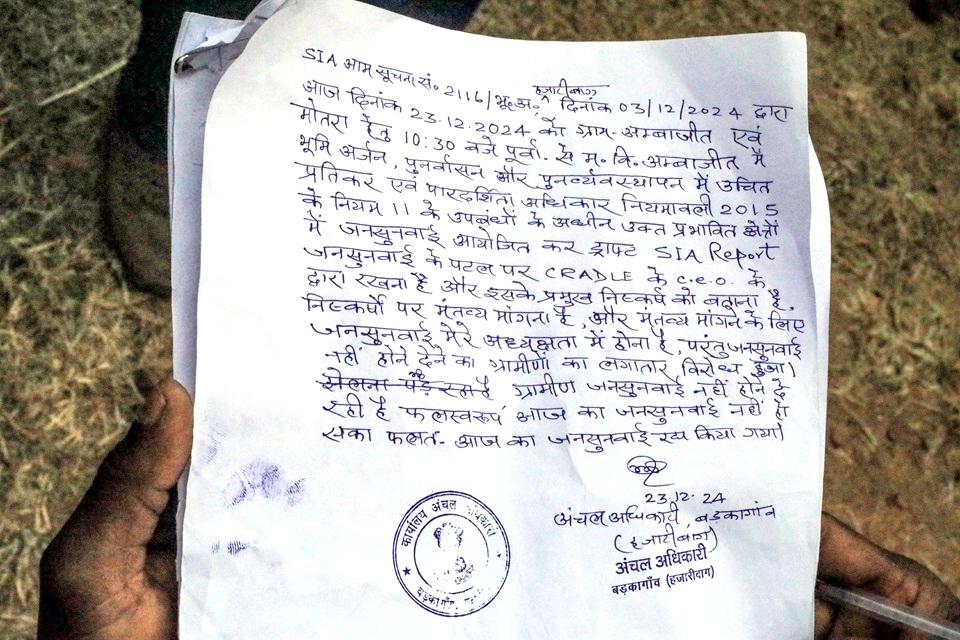 SIA आम सूचना सं॰ 2116/भू॰अ॰, हजारीबाग दिनांक 03/12/2024 द्वारा
आज दिनांक 23.12.2024 को ग्राम-अम्बाजीत एवं
मोतरा हेतु 10:30 बजे पूर्वा. से म॰ वि॰ अम्बाजीत में
भूमि अर्जन, पुनर्वासन और पुनर्व्यवस्थापन में उचित
प्रतिकर एवं पारदर्शिता अधिकार नियमावली 2015
के नियम 11 के उपबंधों के अधीन उक्त प्रभावित क्षेत्रों
में जनसुनवाई आयोजित कर ड्राफ्ट SIA Report
जनसुनवाई के पटल पर CRADLE के C.e.o. के
द्वारा रखना है और इसके प्रमुख निष्कर्ष को बताना है,
निष्कर्षों पर मंतव्य मांगना है, और मंतव्य मांगने के लिए
जनसुनवाई मेरे अध्यक्षता में होना है, परंतु जनसुनवाई
नहीं होने देने का ग्रामीणों का लगातार विरोध हुआ।
ग्रामीण जनसुनवाई नहीं होने दे
रही है फलस्वरूप आज का जनसुनवाई नहीं हो
सका फलतः आज का जनसुनवाई रद्द किया गया।
23.12.24
अंचल अधिकारी, बड़कागांव
(हजारीबाग)
अंचल अधिकारी
बड़कागाँव (हजारीबाग)
कार्यालय अंचल अधिकारी
बड़कागाँव